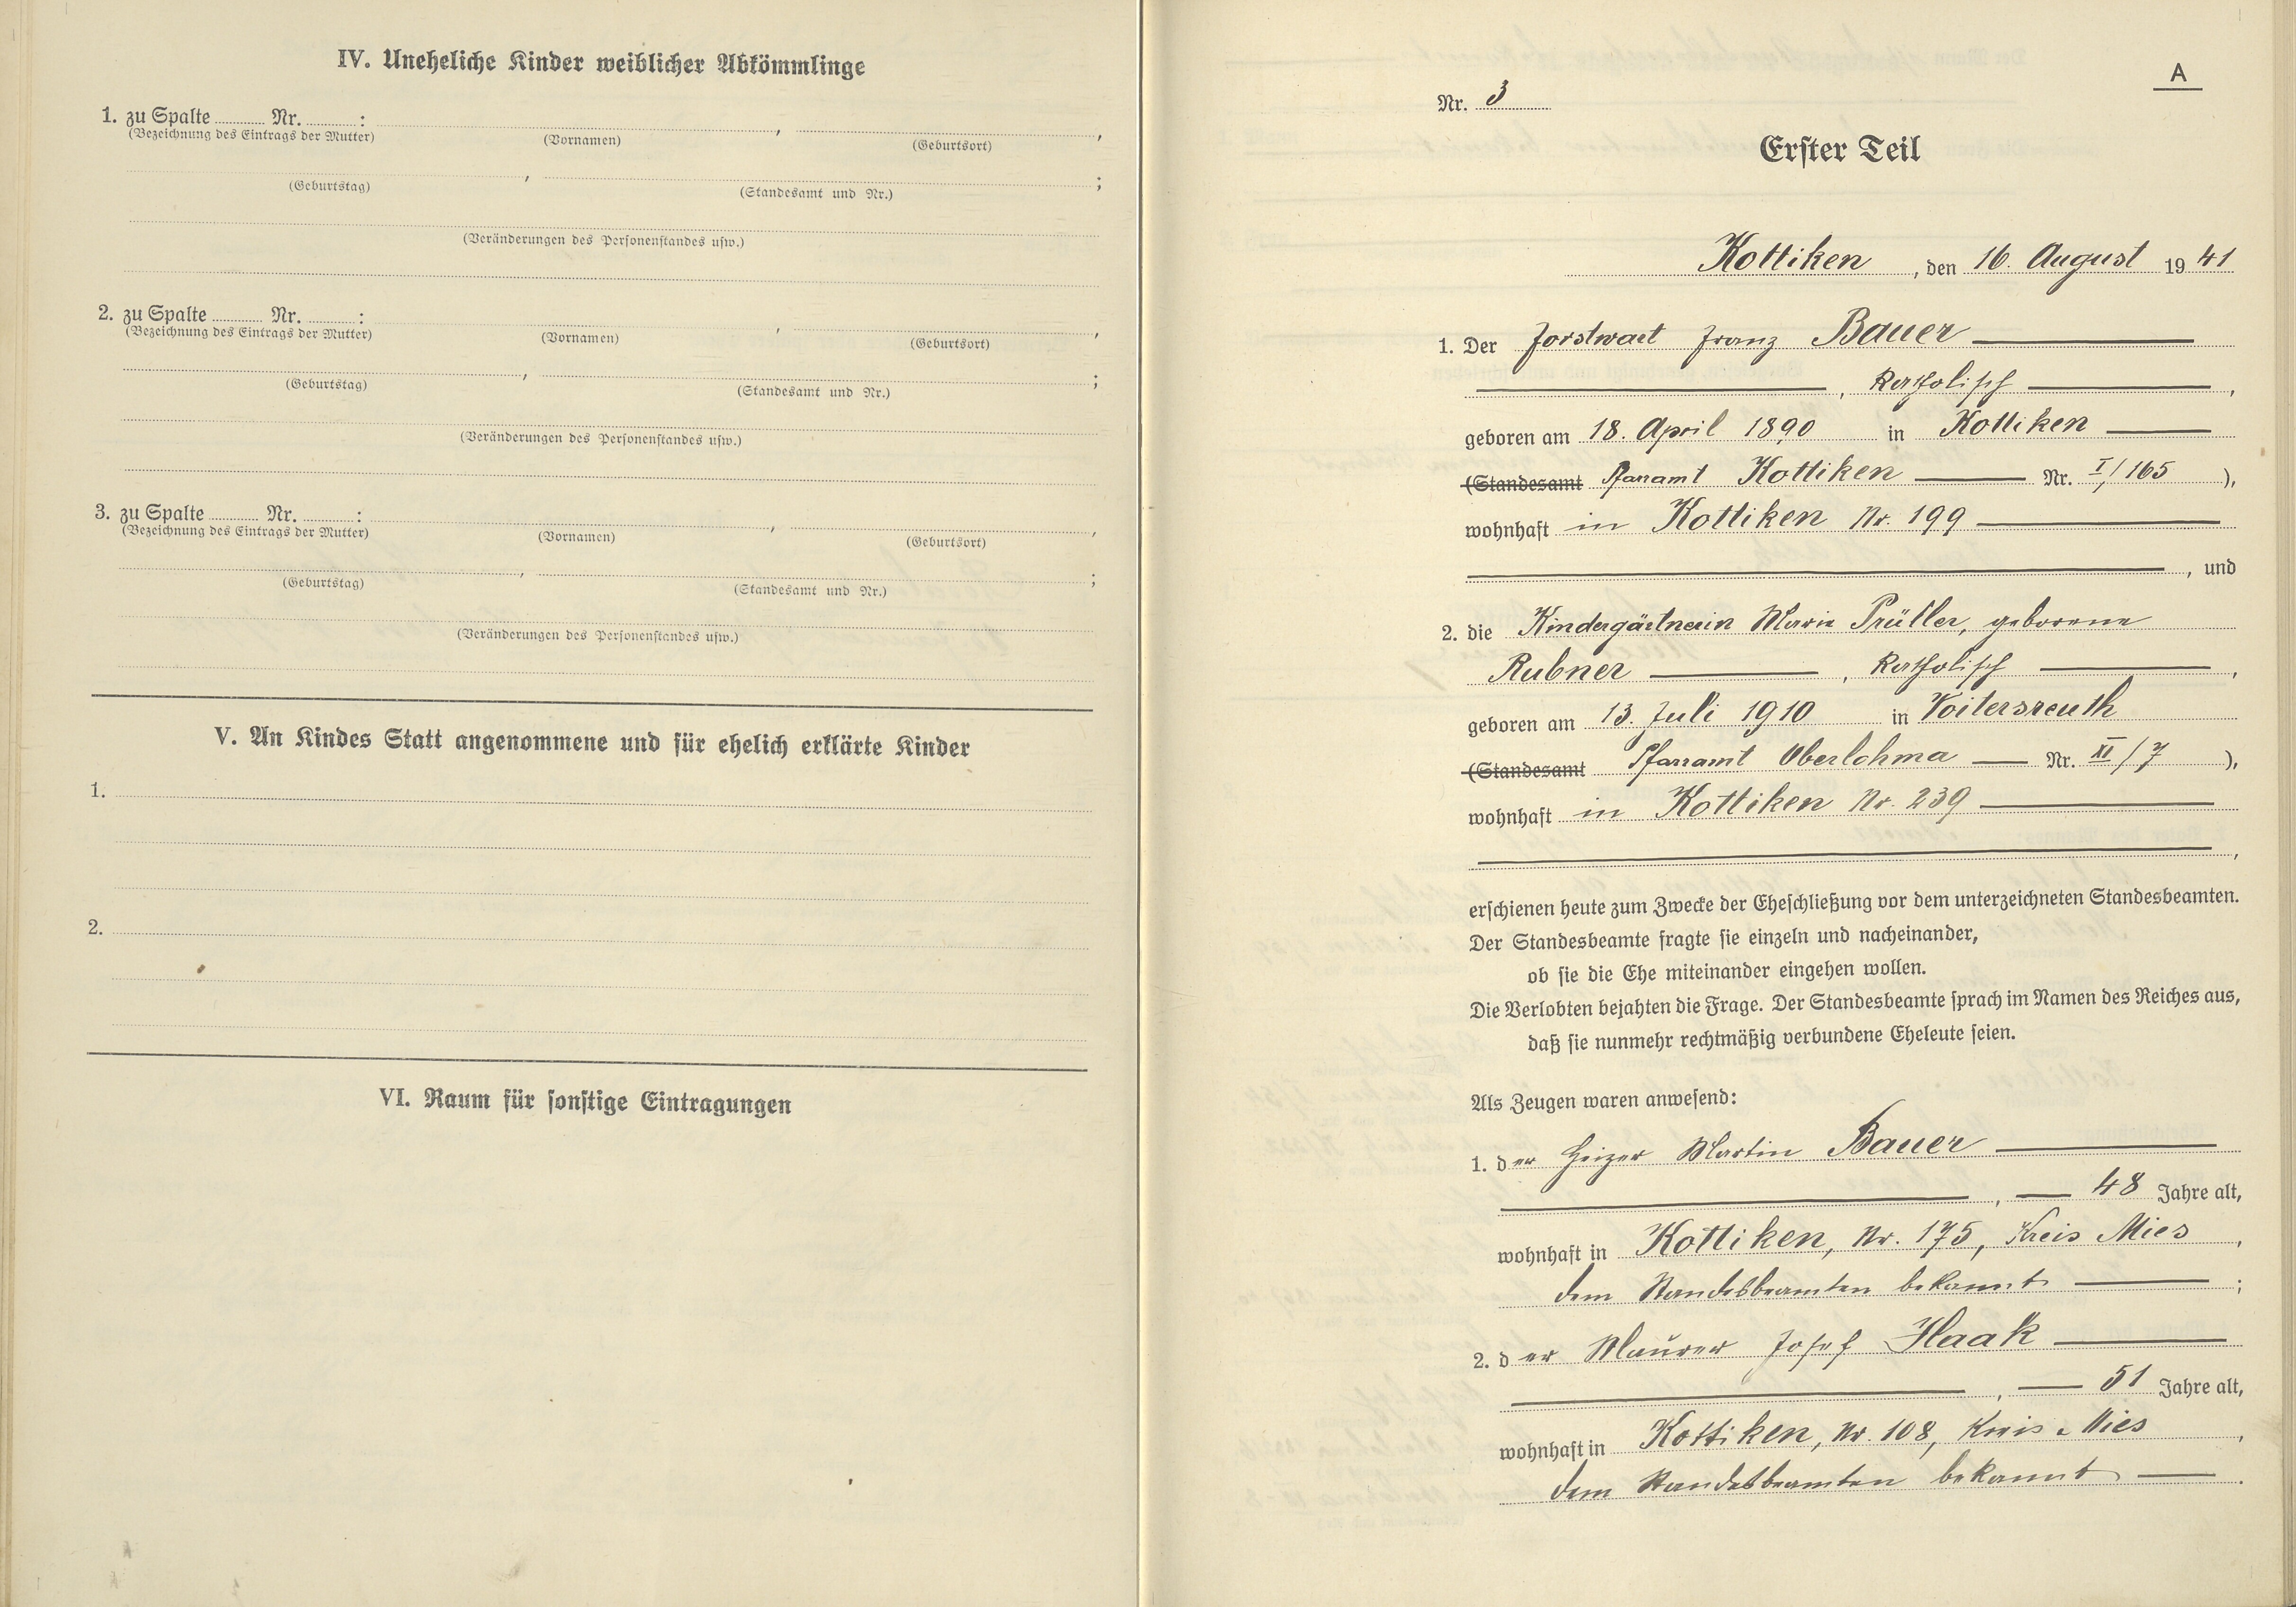 IV. Uneheliche Kinder weiblicher Abkömmlinge
1. zu Spalte ........ Nr. ........ :
(Bezeichnung des Eintrags der Mutter) (Vornamen) , (Geburtsort) ,
(Geburtstag) , (Standesamt und Nr.) ;
(Veränderungen des Personenstandes usw.)
2. zu Spalte ........ Nr. ........ :
(Bezeichnung des Eintrags der Mutter) (Vornamen) , (Geburtsort) ,
(Geburtstag) , (Standesamt und Nr.) ;
(Veränderungen des Personenstandes usw.)
3. zu Spalte ........ Nr. ........ :
(Bezeichnung des Eintrags der Mutter) (Vornamen) , (Geburtsort) ,
(Geburtstag) , (Standesamt und Nr.) ;
(Veränderungen des Personenstandes usw.)
V. An Kindes Statt angenommene und für ehelich erklärte Kinder
1.
2.
VI. Raum für sonstige Eintragungen
A
Nr. 3
Erster Teil
Kottiken , den 16. August 1941
1. Der Forstwart Franz Bauer
, katholisch ,
geboren am 18. April 1890 in Kottiken
(Standesamt Pfarramt Kottiken Nr. I/165 ),
wohnhaft in Kottiken Nr. 199
, und
2. die Kindergärtnerin Marie Prüller, geborene
Rubner , katholisch ,
geboren am 13. Juli 1910 in Voitersreuth
(Standesamt Pfarramt Oberlohma Nr. XI/7 ),
wohnhaft in Kottiken Nr. 239
,
erschienen heute zum Zwecke der Eheschließung vor dem unterzeichneten Standesbeamten.
Der Standesbeamte fragte sie einzeln und nacheinander,
ob sie die Ehe miteinander eingehen wollen.
Die Verlobten bejahten die Frage. Der Standesbeamte sprach im Namen des Reiches aus,
daß sie nunmehr rechtmäßig verbundene Eheleute seien.
Als Zeugen waren anwesend:
1. der Heizer Martin Bauer
, 48 Jahre alt,
wohnhaft in Kottiken, Nr. 175, Kreis Mies ,
dem Standesbeamten bekannt ;
2. der Maurer Josef Haak
, 51 Jahre alt,
wohnhaft in Kottiken, Nr. 108, Kreis Mies ,
dem Standesbeamten bekannt .